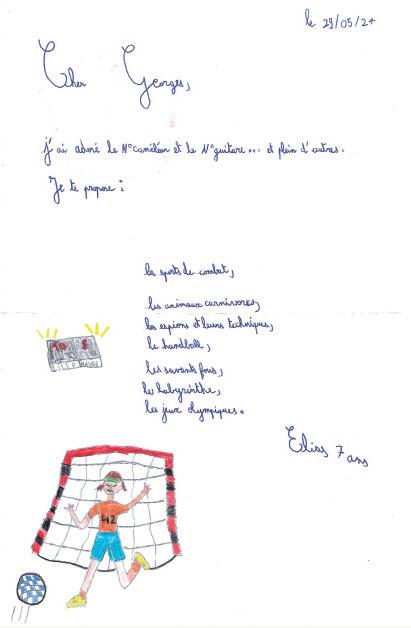 le 29/05/24
Cher Georges,
j'ai adoré le N° caméléon et le N° guitare... et plein d'autres.
Je te propose :
les sports de combat,
les animaux carnivores,
les espions et leurs techniques,
le handball,
les savants fous,
le labyrinthe,
les jeux olympiques.
LILLE
Elias 7 ans